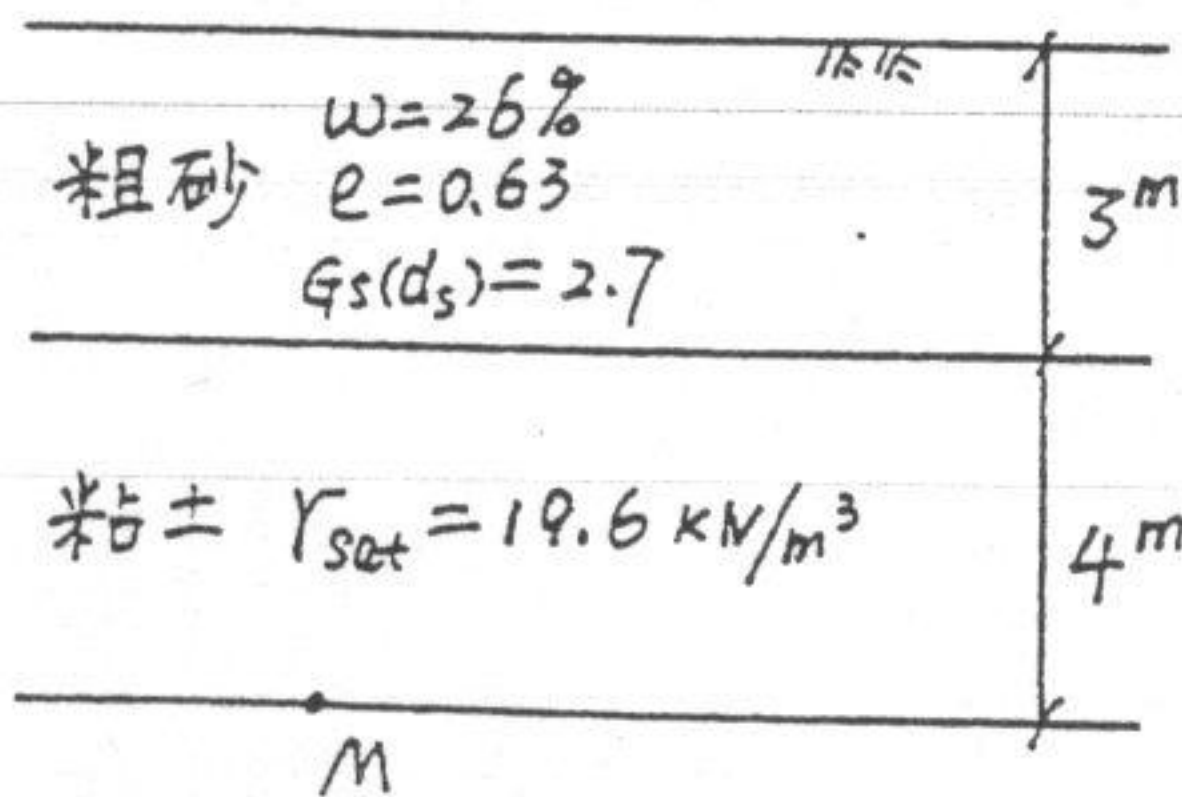 w=26%
粗砂 e=0.63
Gs(ds)=2.7
3m
粘土 γsat=19.6 kN/m³
4m
M